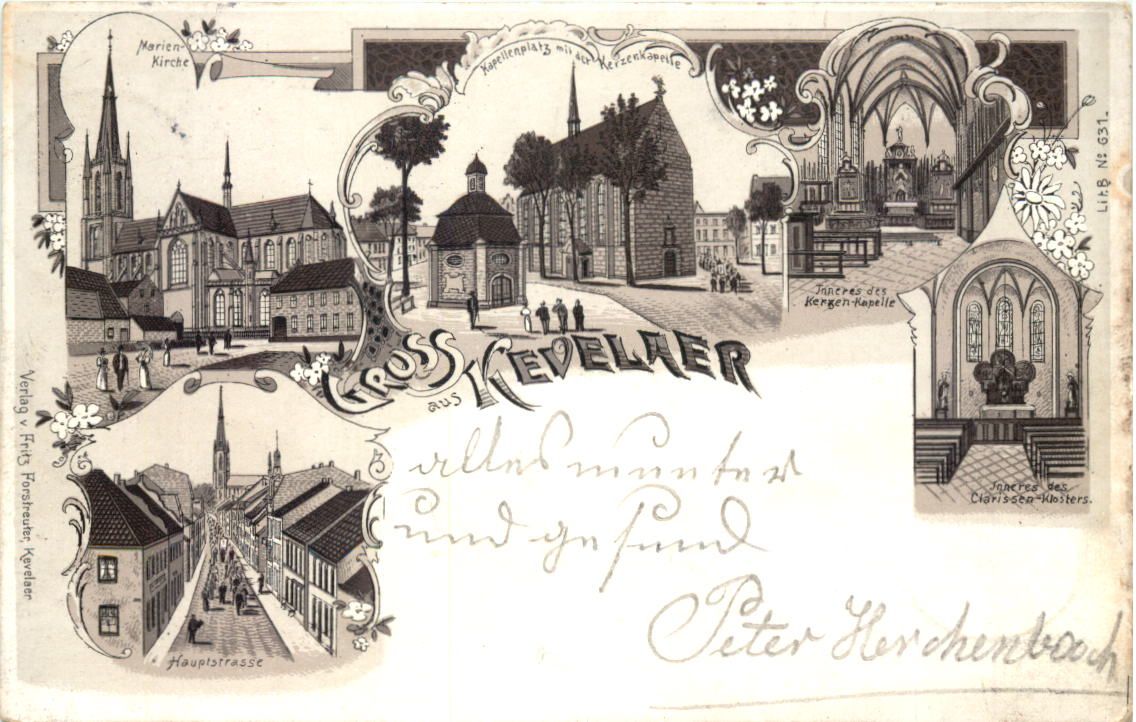 Marien-
Kirche
Kapellenplatz mit der Kerzenkapelle
Inneres des
Kerzen-Kapelle
Lit. B № 631.
GRUSS
aus KEVELAER
Inneres des
Clarissen-Klosters.
alles munter
und gesund
Peter Herchenbach
Hauptstrasse
Verlag v Fritz Forstreuter, Kevelaer